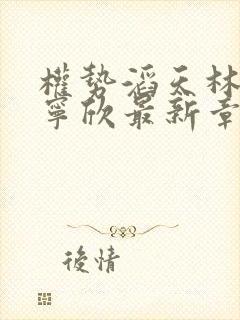 權勢滔天林
寧欣最新章
後情